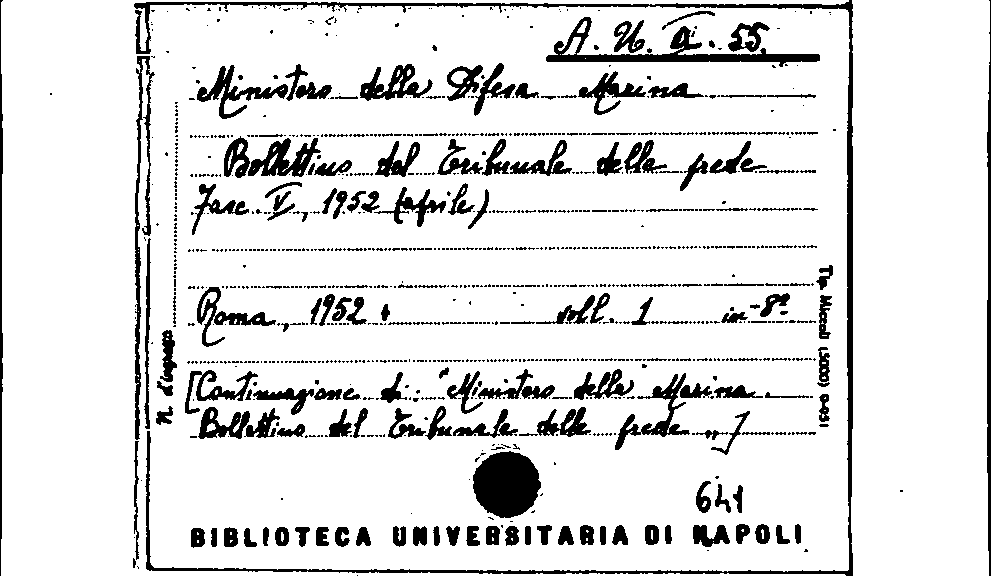 A. U. II. 55.
Ministero della Difesa Marina
Bollettino del Tribunale delle prede
Fasc. V, 1952 (aprile)
Roma, 1952 + voll. 1 in-8º
[Continuazione di: "Ministero della Marina.
Bollettino del Tribunale delle prede „]
641
BIBLIOTECA UNIVERSITARIA DI NAPOLI
N. d'ingresso
Tip. Miccoli (5000) 9-051